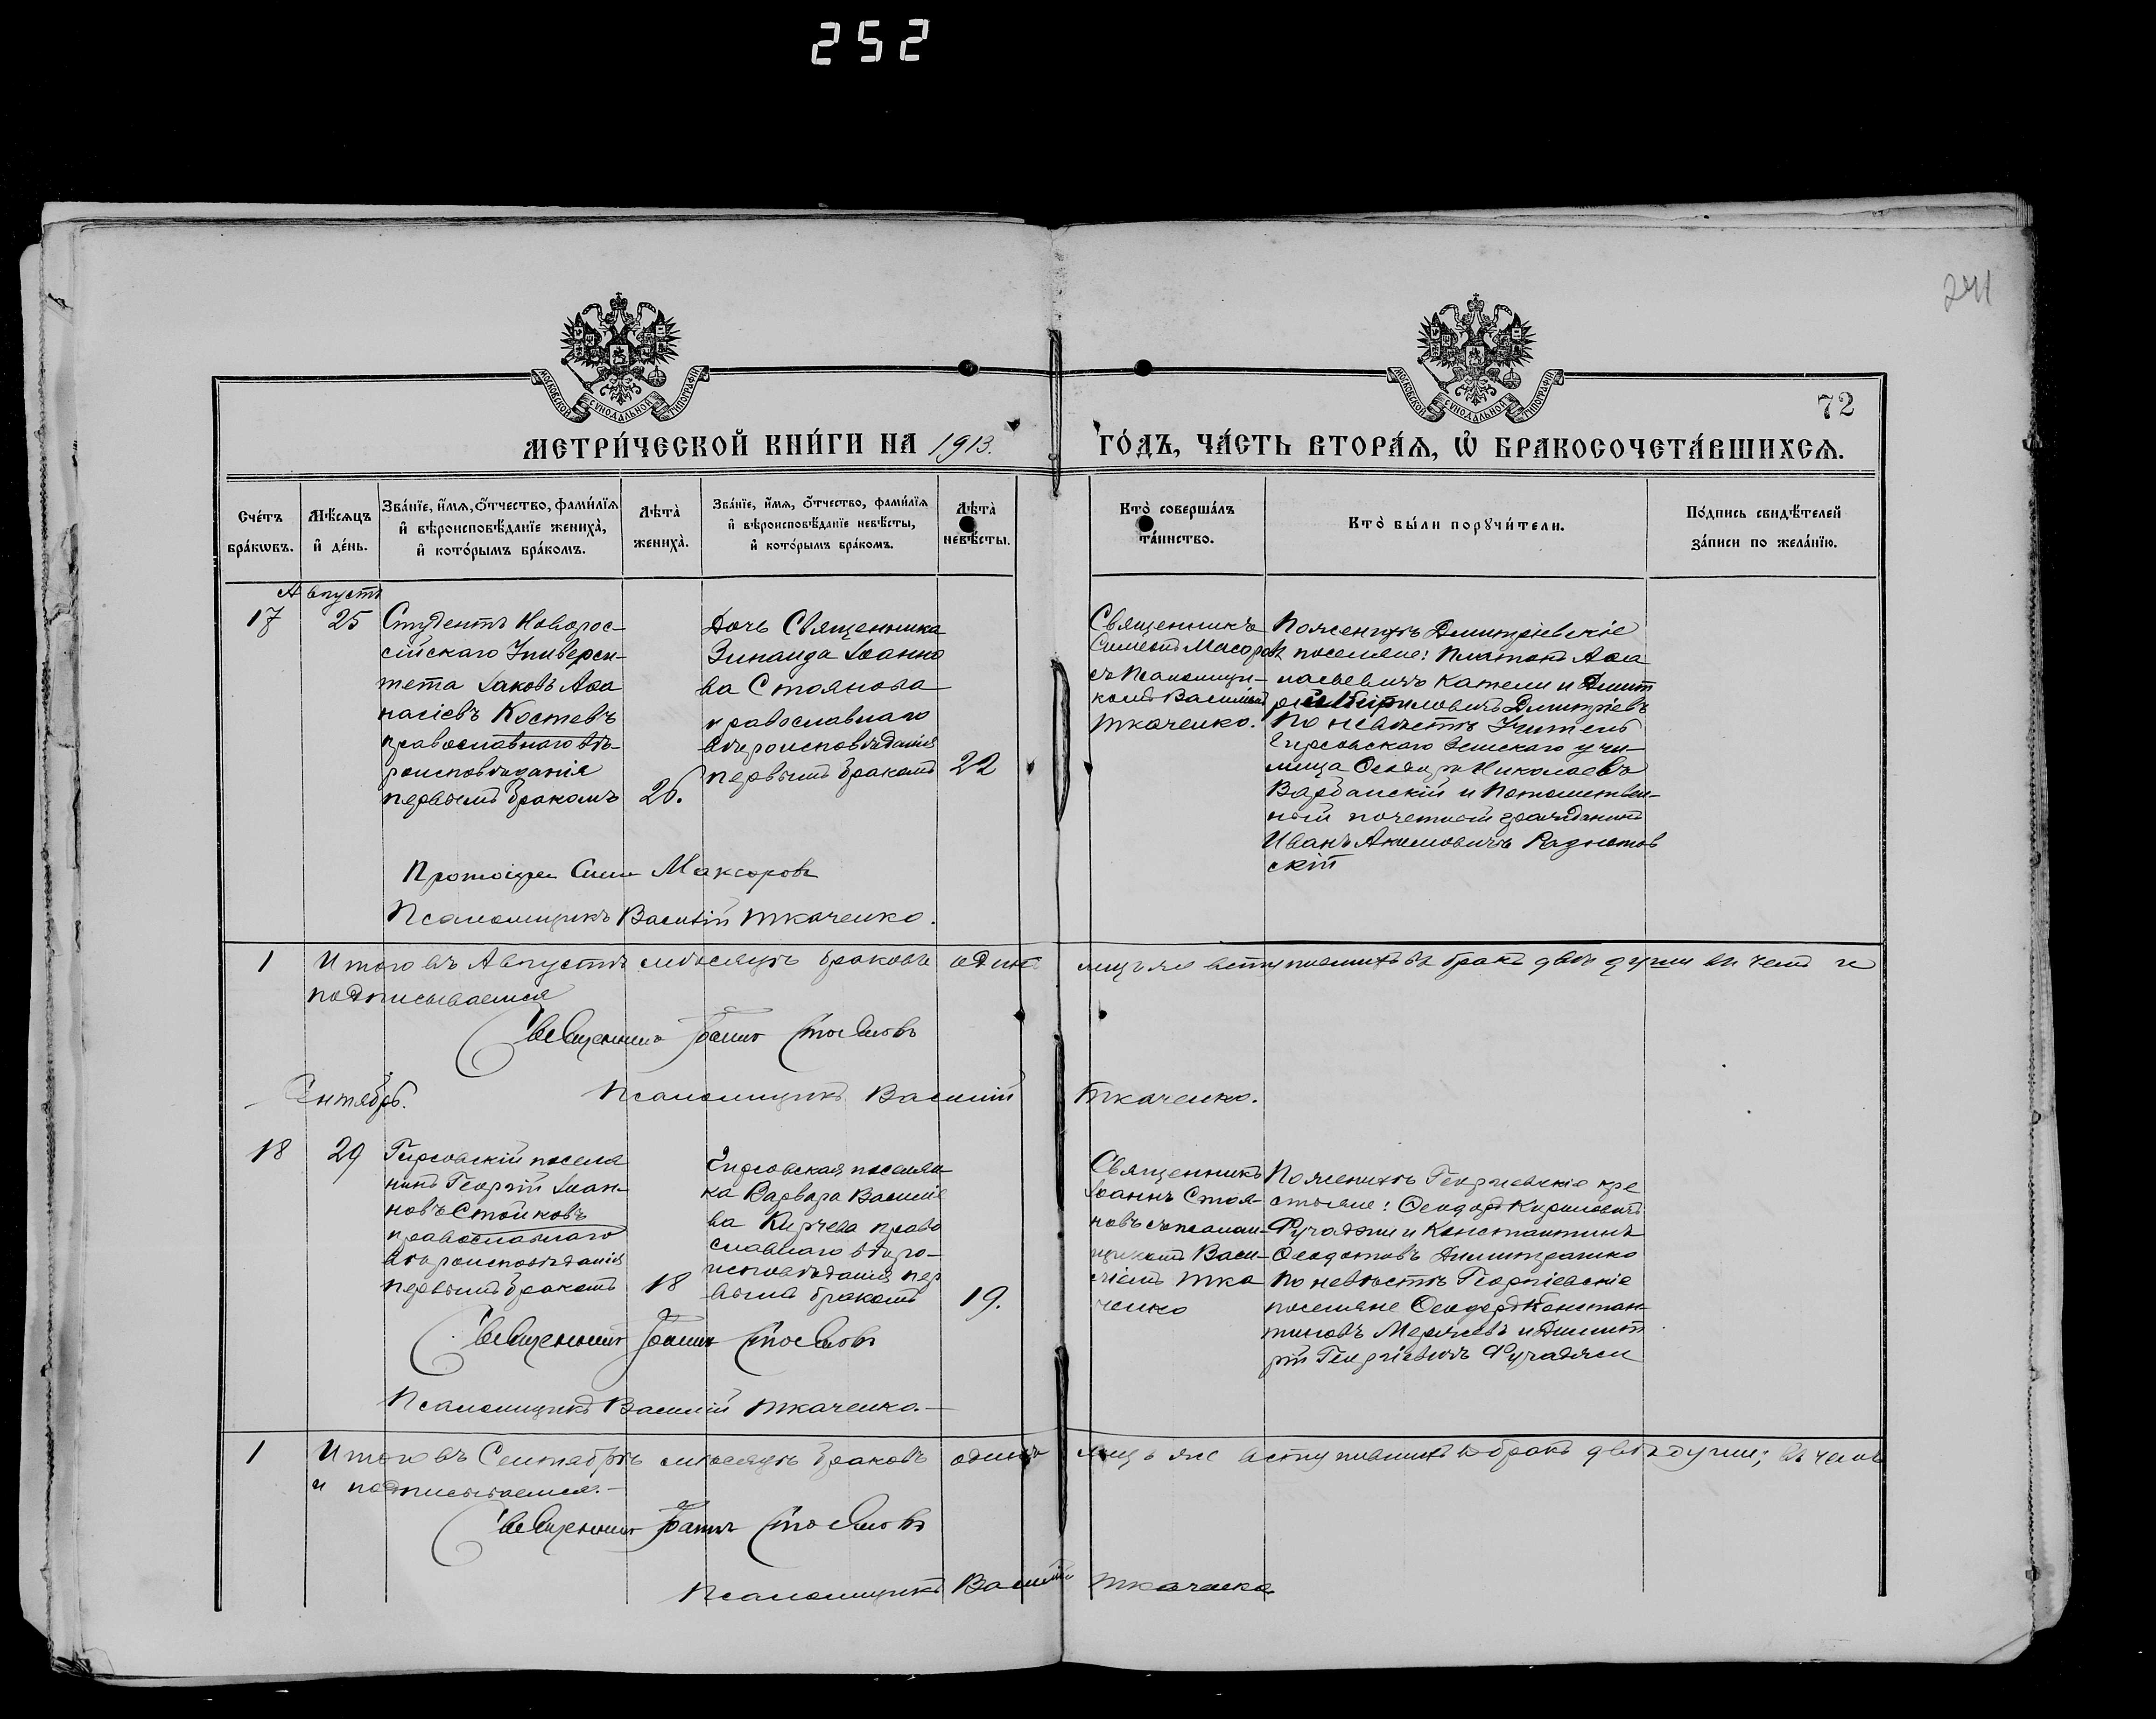 252
241
МОСКОВСКОЙ СУНОДАЛЬНОЙ ТИПОГРАФІИ
МОСКОВСКОЙ СУНОДАЛЬНОЙ ТИПОГРАФІИ
72
МЕТРИ́ЧЕСКОЙ КНИ́ГИ НА 1913. ГО́ДЪ, ЧА́СТЬ ВТОРА́Я, Ѡ҆ БРАКОСОЧЕТА́ВШИХСЯ.
Сче́тъ
бра́кѡвъ.
Мѣ́сяцъ
и҆ де́нь.
Зва́нїе, и҆́мя, ѻ҆́тчество, фами́лїя
и҆ вѣроисповѣ́данїе жениха̀,
и҆ кото́рымъ бра́комъ.
Лѣ́та
жениха̀.
Зва́нїе, и҆́мя, ѻ҆́тчество, фами́лїя
и҆ вѣроисповѣ́данїе невѣ́сты,
и҆ кото́рымъ бра́комъ.
Лѣ́та
невѣ́сты.
Кто̀ соверша́лъ
та́инство.
Кто̀ бы́ли порꙋчи́тели.
По́дпись свидѣ́телей
за́писи по жела́нїю.
Августъ
17
25
Студентъ Новорос-
сійскаго Универси-
тета Іаковъ Аѳа
насіевъ Костевъ
православнаго вѣ-
роисповѣданія
первымъ бракомъ
26.
Дочь Священника
Зинаида Іоанно
ва Стоянова
православнаго
вѣроисповѣданія
первымъ бракомъ
22
Священникъ
Симеонъ
съ Псаломщи-
комъ Василіемъ
Ткаченко.
По женихѣ Дмитріевскіе
поселяне: Платонъ Аѳа
насьевичъ и Димит
рій Дмитріевъ
По невѣстѣ Учитель
Гирсовскаго Земскаго учи-
лища Ѳеодоръ Николаевъ
Варбанскій и Потомствен-
ный почетный гражданинъ
Иванъ Акимовичъ
скій
Протоіерей Макаровъ
Псаломщикъ Василій Ткаченко.
1
Итого въ Августѣ мѣсяцѣ браковъ одинъ лицъ же вступившихъ въ бракъ двѣ души въ чемъ и
подписываемся
Священникъ Іоаннъ Стояновъ
Псаломщикъ Василій Ткаченко.
Сентябрь.
18
29
Гирсовскій поселя
нинъ Георгій Іоан-
новъ Стойковъ
православнаго
вѣроисповѣданія
первымъ бракомъ
18
Гирсовская поселян-
ка Варвара Василіе
ва Кирчева право
славнаго вѣро-
исповѣданія пер
вымъ бракомъ
19.
Священникъ
Іоаннъ Стоя-
новъ съ псалом-
щикомъ Васи-
ліемъ Тка
ченко
По женихѣ Георгіевскіе кре
стьяне: Ѳеодоръ Кириловичъ
Фучаджи и Константинъ
Ѳеодотовъ
По невѣстѣ Георгіевскіе
поселяне Ѳеодоръ Констан-
тиновъ и Димит
рій Георгіевичъ Фучаджи
Священникъ Іоаннъ Стояновъ
Псаломщикъ Василій Ткаченко.
1
Итого въ Сентябрѣ мѣсяцѣ браковъ одинъ лицъ же вступившихъ въ бракъ двѣ души; въ чемъ
и подписываемся.
Священникъ Іоаннъ Стояновъ
Псаломщикъ Василій Ткаченко